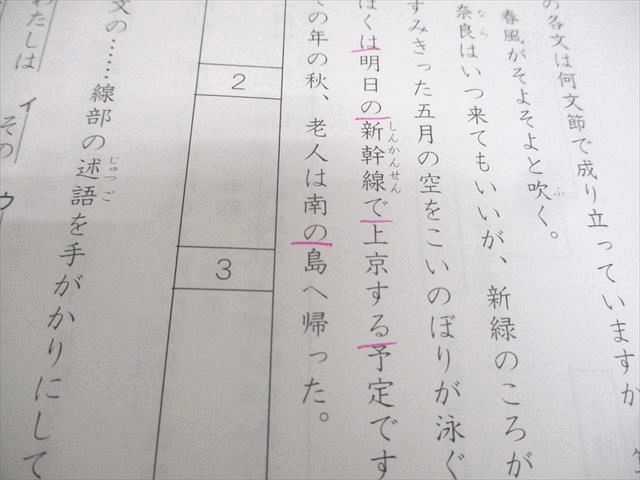 の各文は何文節で成り立っていますか
春風がそよそよと吹く。
奈良はいつ来てもいいが、新緑のころが
すみきった五月の空をこいのぼりが泳ぐ
ぼくは明日の新幹線で上京する予定です
の年の秋、老人は南の島へ帰った。
2
3
文の……線部の述語を手がかりにして
わたしは イ その ウ